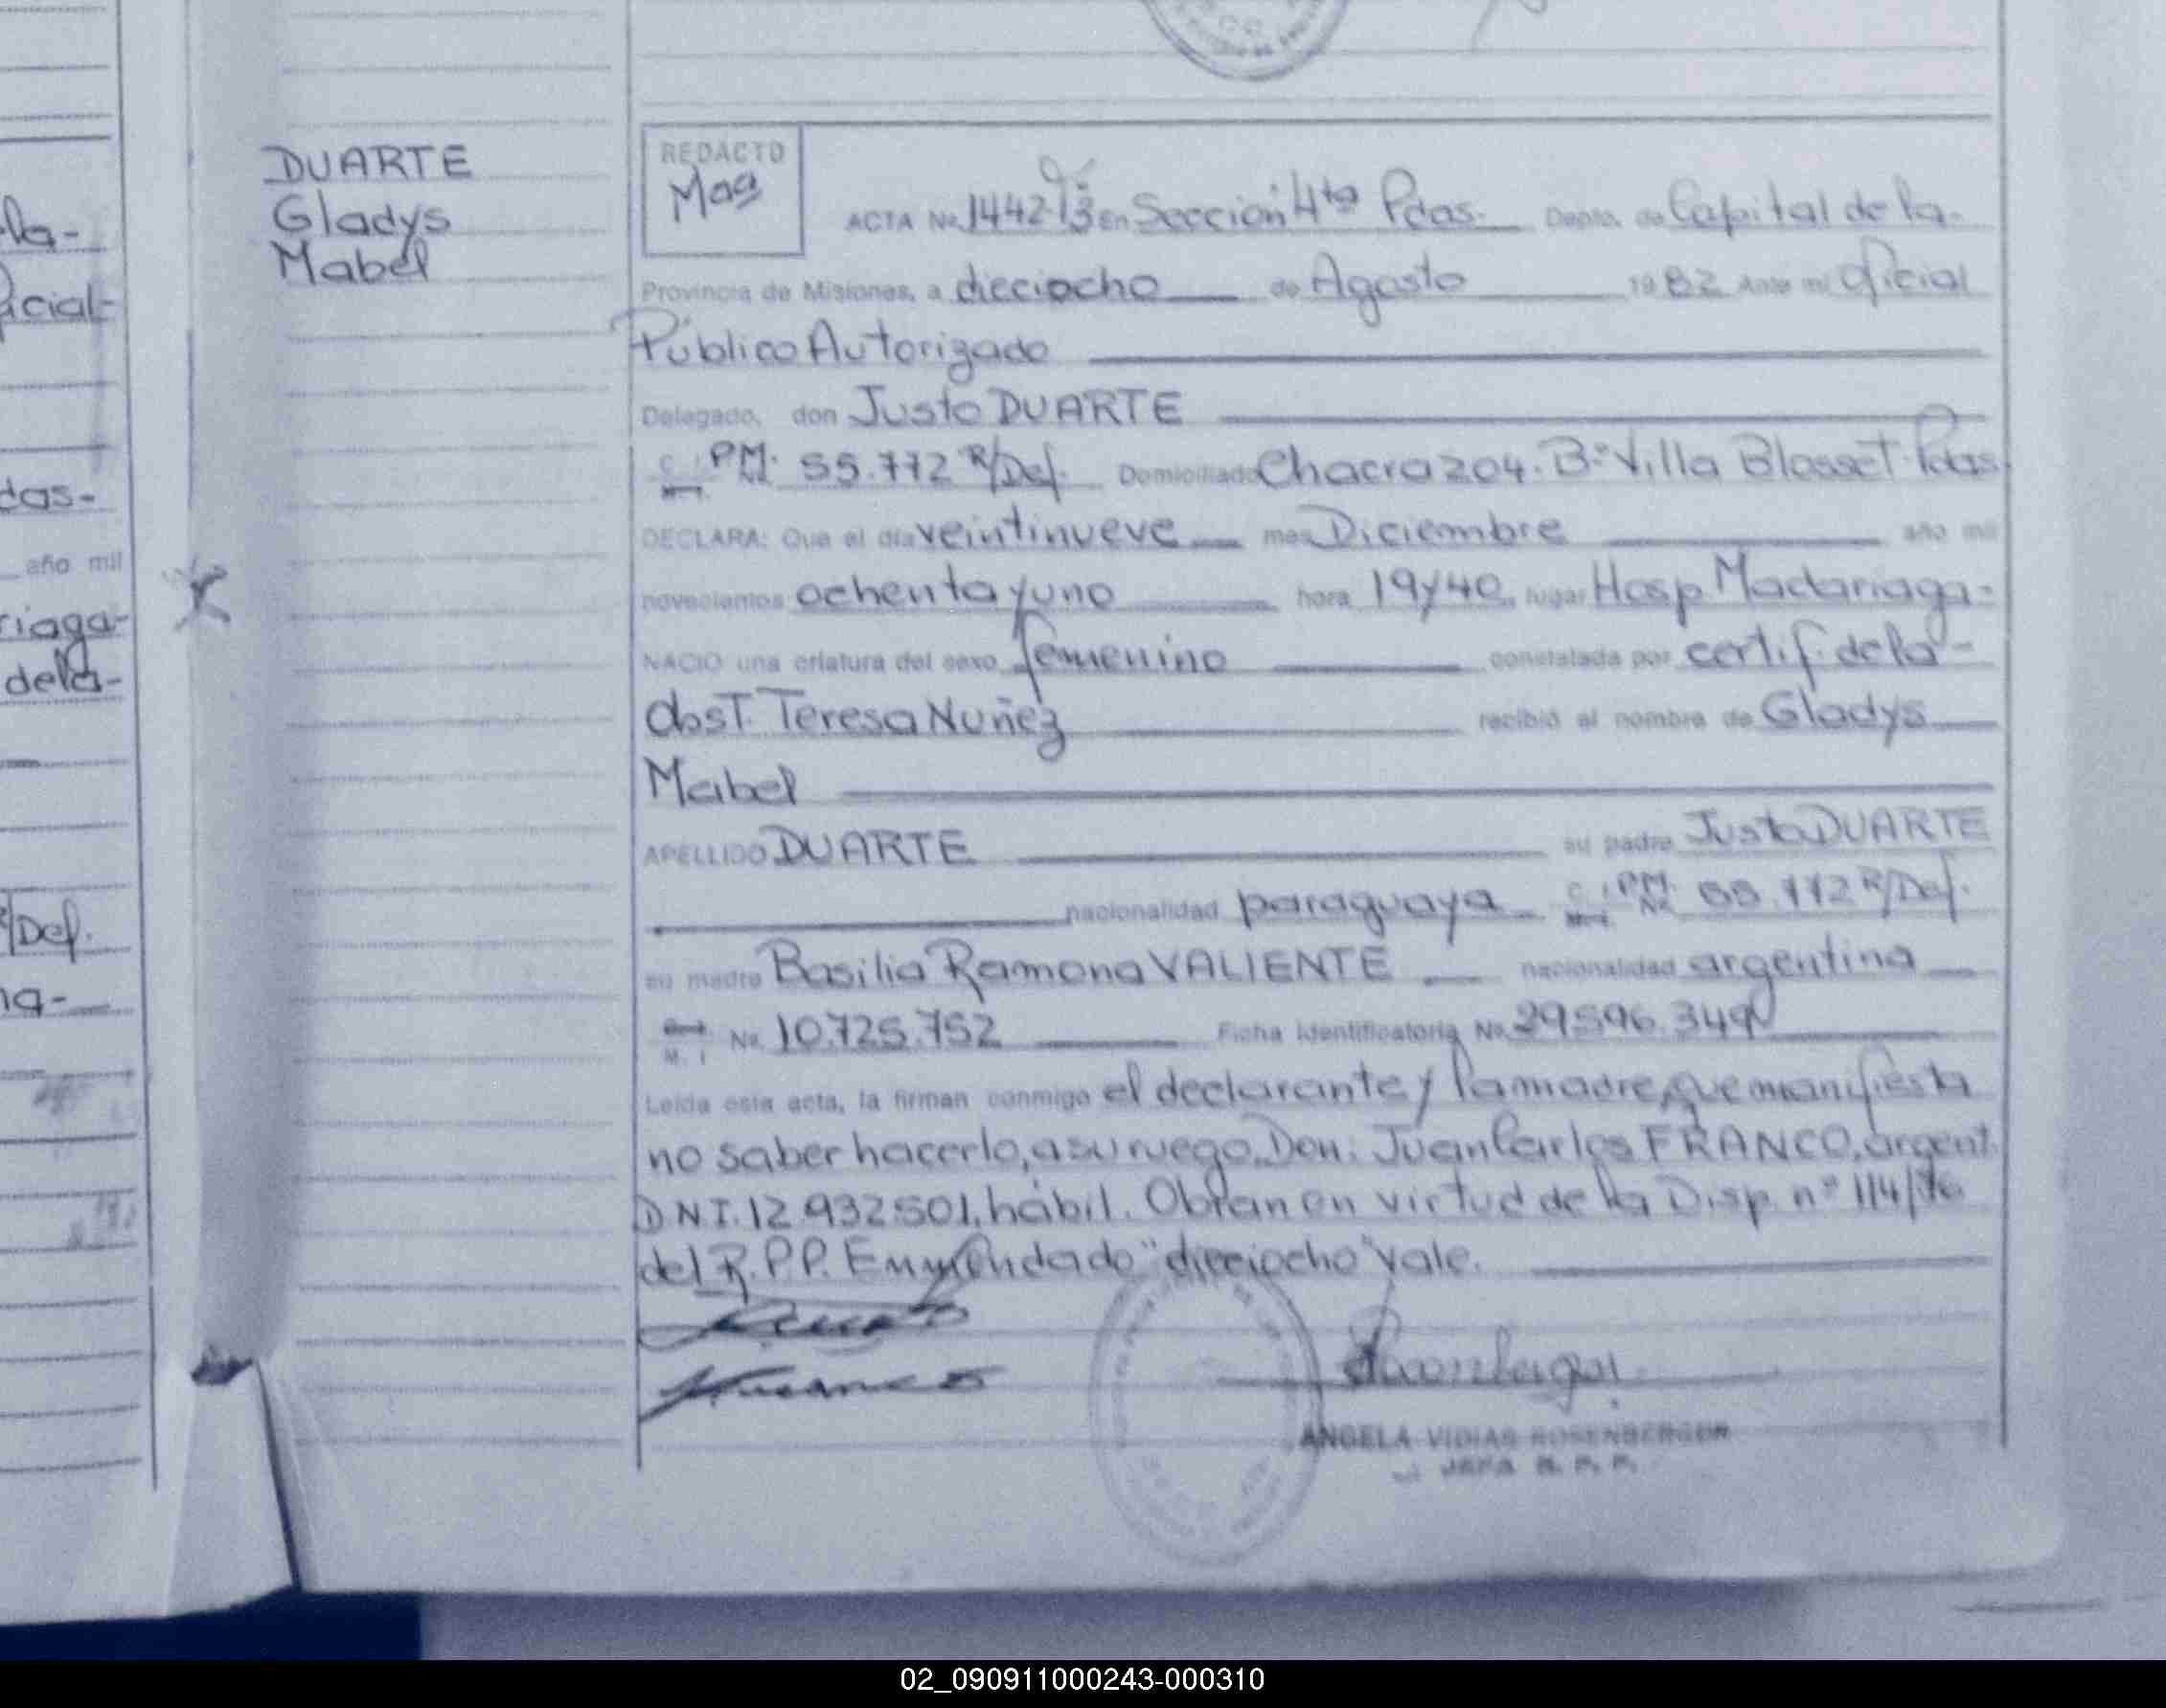 DUARTE
Gladys
Mabel
REDACTO
Mag
ACTA No. 1442 T3 en Sección 4ta Pdas. Depto. de Capital de la-
Provincia de Misiones, a dieciocho de Agosto 1982 Ante mi Oficial
Público Autorizado
Delegado, don Justo DUARTE
C.I. PM. No. 55.772 R/Def. Domiciliado Chacra 204. B° Villa Blosset Pdas
DECLARA: Que el día veintinueve mes Diciembre año mil
novecientos ochenta y uno hora 19y40, lugar Hosp Madariaga-
NACIO una criatura del sexo femenino constatada por certif. de la-
obst. Teresa Nuñez recibió el nombre de Gladys
Mabel
APELLIDO DUARTE su padre Justo DUARTE
nacionalidad paraguaya C.I. PM. No. 55.772 R/Def.
su madre Basilia Ramona VALIENTE nacionalidad argentina
M. I. No. 10.725.752 Ficha identificatoria No. 29596.349
Leída esta acta, la firman conmigo el declarante y la madre, que manifiesta
no saber hacerlo, a su ruego, Don: Juan Carlos FRANCO, argent.
D N.I. 12.932.501, hábil. Obran en virtud de la Disp. n° 114/76
del R.P.P. Enmendado "dieciocho" vale.
ANGELA VIDIAS ROSENBERGER
JEFA R. P. P.
dela-
icial-
das-
año mil
riaga-
dela-
R/Def.
na-
02_090911000243-000310